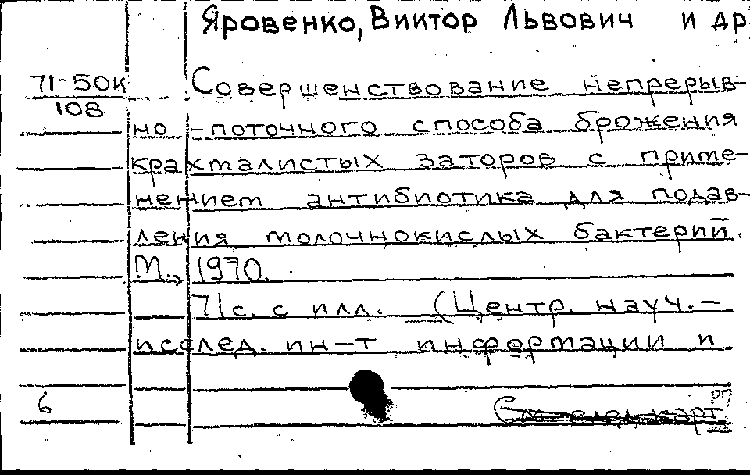 Яровенко, Виктор Львович и др
71-50к
108
Совершенствование непрерыв-
но-поточного способа брожения
крахмалистых заторов с приме-
нением антибиотика для подав-
ления молочнокислых бактерий.
М., 1970.
71с. с илл. (Центр. науч.-
исслед. ин-т информации и
6
См. след. карт.